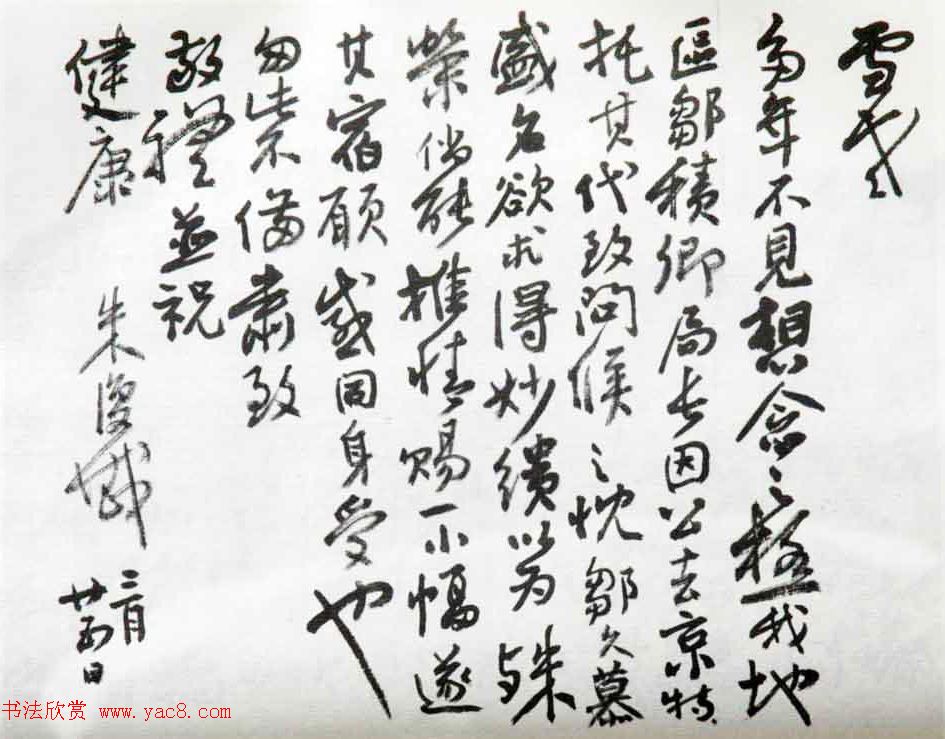 雪
多年不見想念之極我地
區鄒積卿局長因公去京特
托其代致問候之忱鄒久慕
盛名欲求得妙繢以为殊
榮倘能推情賜一小幅遂
其宿願感同身受也
匆此不備肅致
敬禮並祝
健康
朱復戡
三月
廿五日
书法欣赏 www.yac8.com